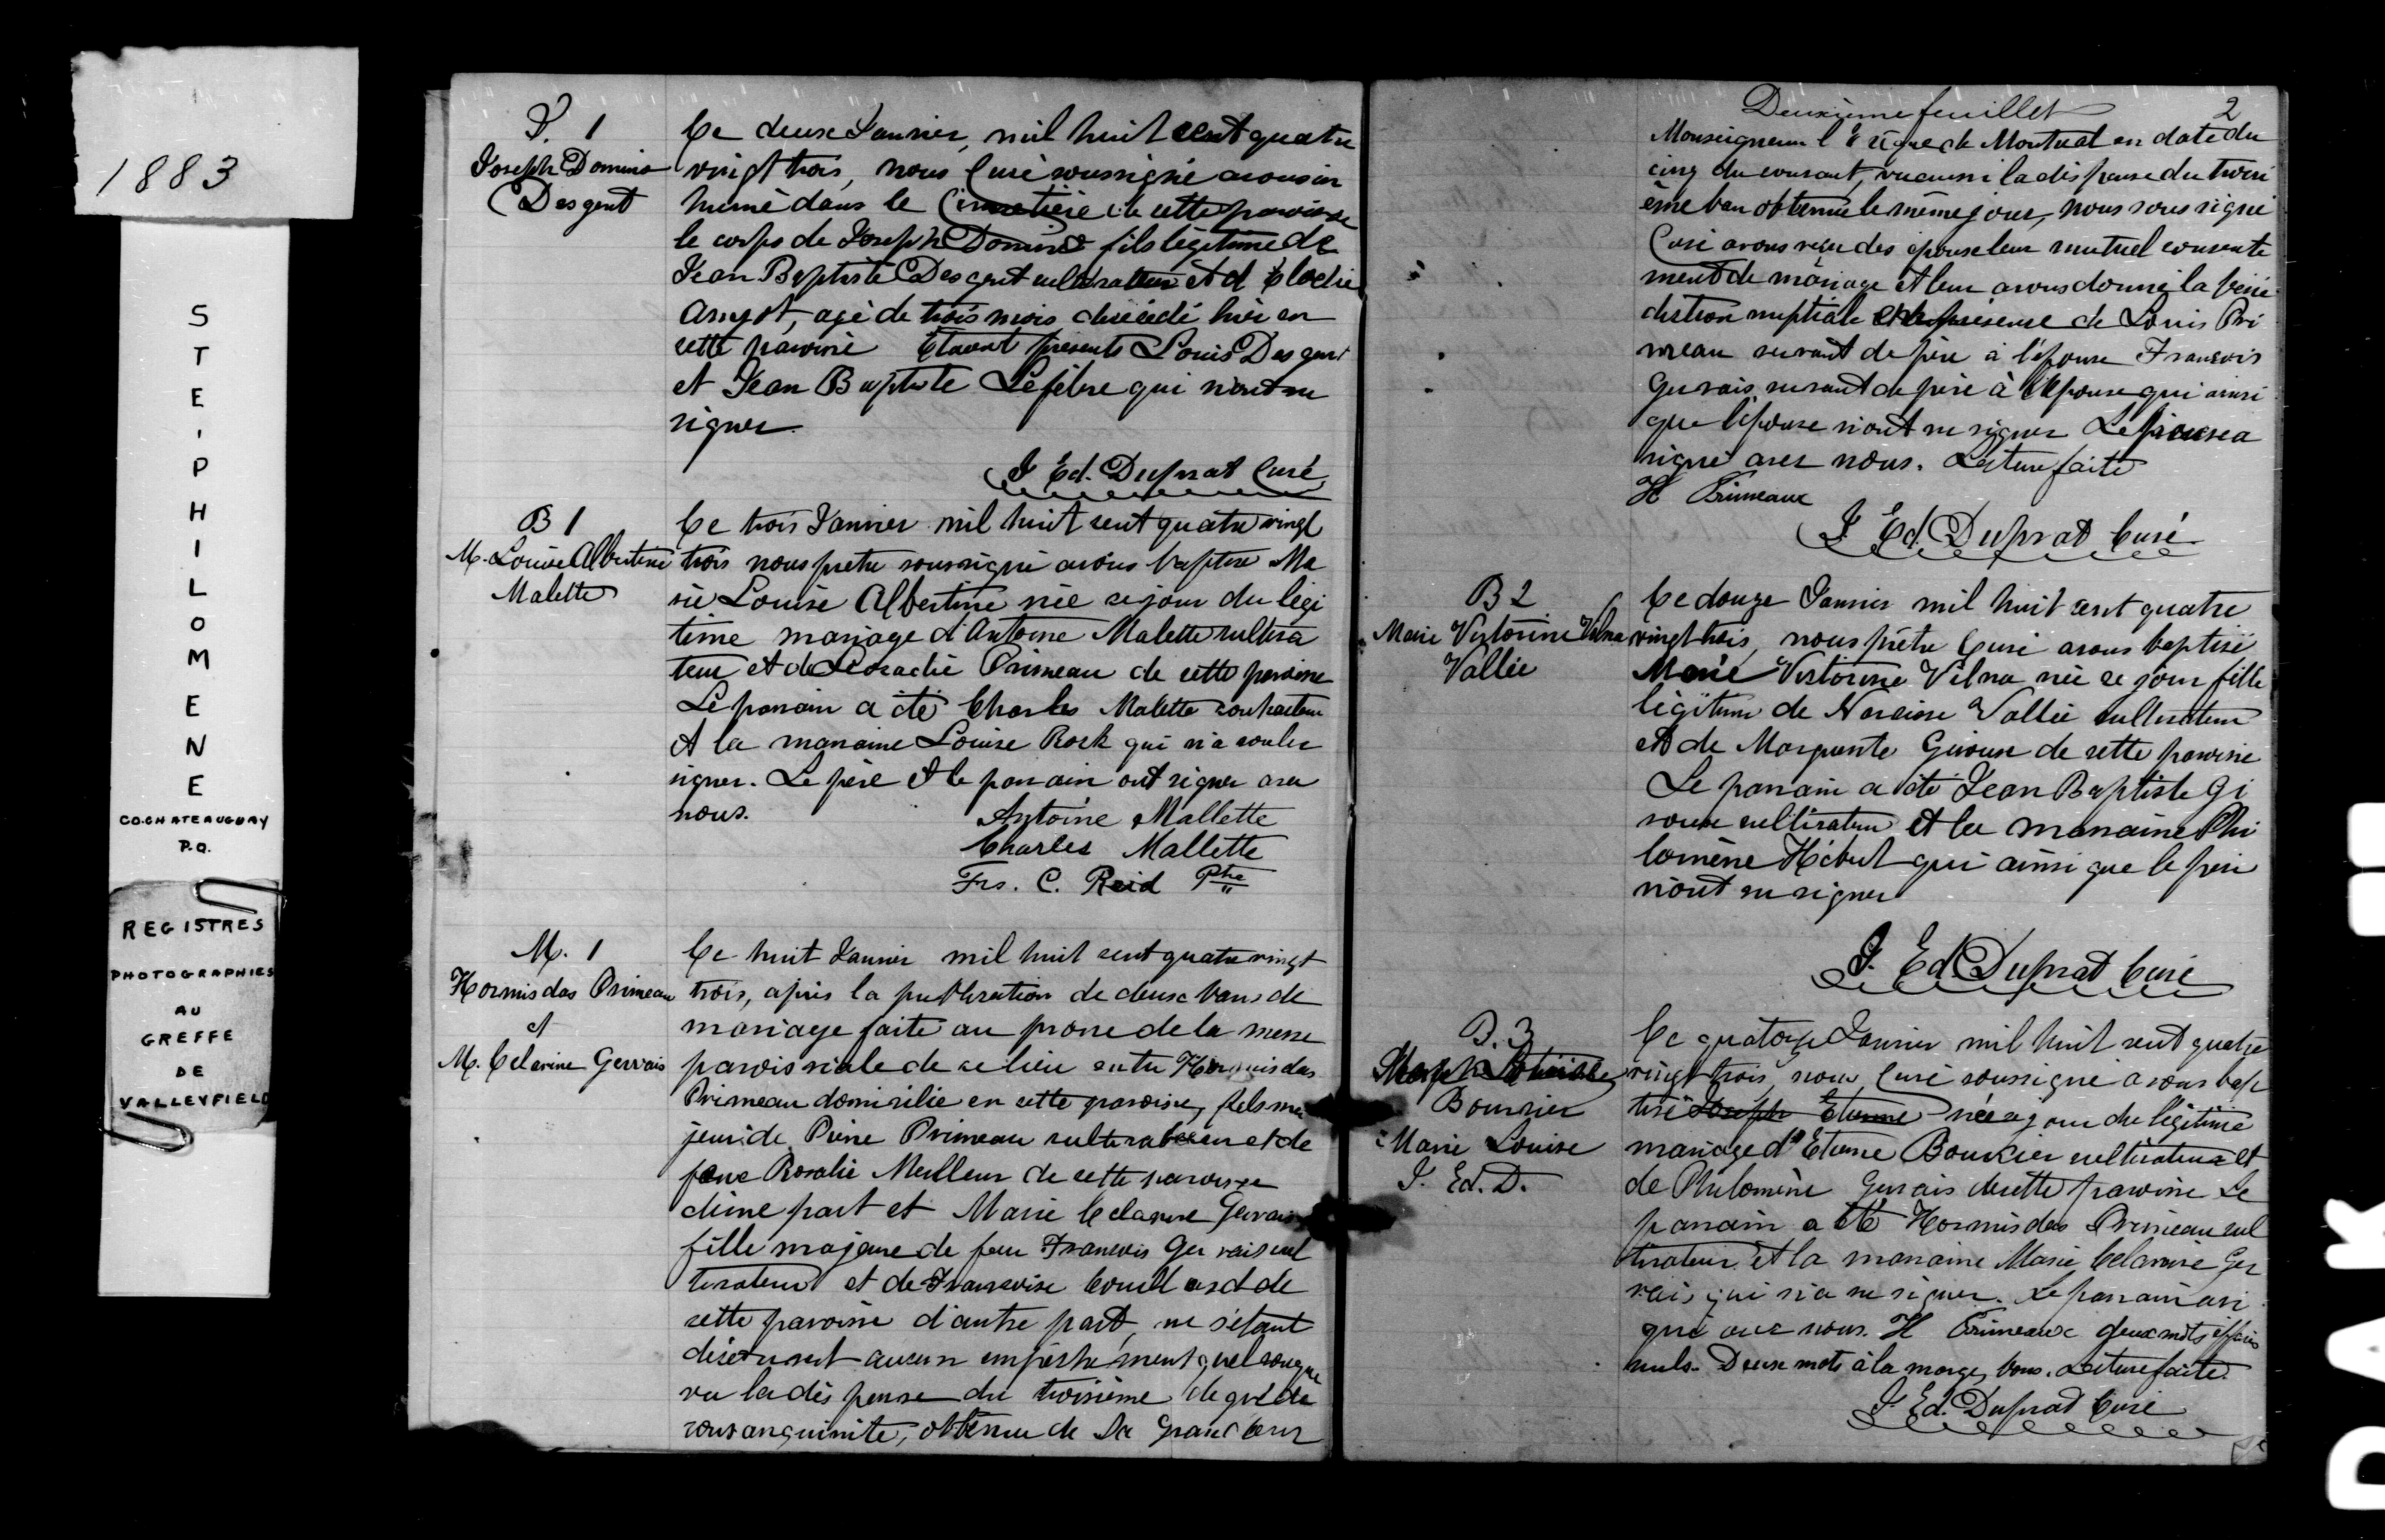 1883
STE-PHILOMENE
CO.CHATEAUGUAY
P.Q.
REGISTRES
PHOTOGRAPHIES
AU
GREFFE
DE
VALLEYFIELD
S. 1
Joseph Domina
Desgent
Ce deux Janvier, mil huit cent quatre
vingt trois, nous Curé soussigné avons in
humé dans le Cimetière de cette paroisse
le corps de Joseph Domina fils légitime de
Jean Baptiste Desgent cultivateur et d'Elodie
Amyot, agé de trois mois décédé hier en
cette paroisse Etaient présents Louis Desgent
et Jean Baptiste Lefebre qui n'ont su
signer.
J Ed. Duprat Curé
B 1
M. Louise Albertine
Malette
Ce trois Janvier mil huit cent quatre vingt
trois nous pretre soussigné avons baptisé Ma
rie Louise Albertine née ce jour du légi
time mariage d'Antoine Malette cultiva
teur et de Léocadie Primeau de cette paroisse
Le parrain a été Charles Malette
et la marraine Louise Rock qui n'a voulu
signer. Le père et le parrain ont signer avec
nous.
Antoine Mallette
Charles Mallette
Frs. C. Reid Ptre
M. 1
Hormisdas Primeau
et
M. Celarine Gervais
Ce huit Janvier mil huit cent quatre vingt
trois, après la publication de deux bans de
mariage faite au prone de la messe
paroissiale de ce lieu entre Hormisdas
Primeau domicilié en cette paroisse, fils ma
jeur de Pierre Primeau cultivateur et de
feue Rosalie Meilleur de cette paroisse
d'une part et Marie Celarine Gervais
fille majeure de feu Francois Gervais cul
tivateur et de Francoise Couillard de
cette paroisse d'autre part, ne s'étant
découvert aucun empêchement quelconque
vu la dispense du troisième degré de
consanguinité, obtenue de Sa Grandeur
Deuxième feuillet 2
Monseigneur l'Evêque de Montreal en date du
cinq du courant, vu aussi la dispense du troisi
ème ban obtenue le même jour, nous soussigné
Curé avons reçu des époux leur mutuel consente
ment de mariage et leur avons donné la béné
diction nuptiale en présence de Louis Pri
meau servant de père à l'époux Francois
Gervais servant de père à l'épouse qui ainsi
que l'épouse n'ont su signer Le époux a
signé avec nous. Lecture faite
H Primeaux
J. Ed. Duprat Curé
B 2
Marie Victorine Vilna
Vallée
Ce douze Janvier mil huit cent quatre
vingt trois, nous prêtre Curé avons baptisé
Marie Victorine Vilna née ce jour fille
légitime de Narcisse Vallée cultivateur
et de Marguerite Giroux de cette paroisse
Le parrain a été Jean Baptiste Gi
roux cultivateur et la marraine Phi
lomène Hébert qui ainsi que le père
n'ont su signer
J. Ed. Duprat Curé
B. 3
Joseph Etienne
Bourcier
Marie Louise
J. Ed. D.
Ce quatorze Janvier mil huit cent quatre
vingt trois, nous, Curé soussigné avons bap
tisé Joseph Etienne née ce jour du légitime
mariage d'Etienne Bourcier cultivateur et
de Philomène Gervais de cette paroisse Le
parrain a été Hormisdas Primeau cul
tivateur et la marraine Marie Celarine Ger
vais, qui n'a su signer. Le parrain a si
gné avec nous. H Primeaux deux mots effacés
nuls. Deux mots à la marge, bons. Lecture faite.
J. Ed. Duprat Curé